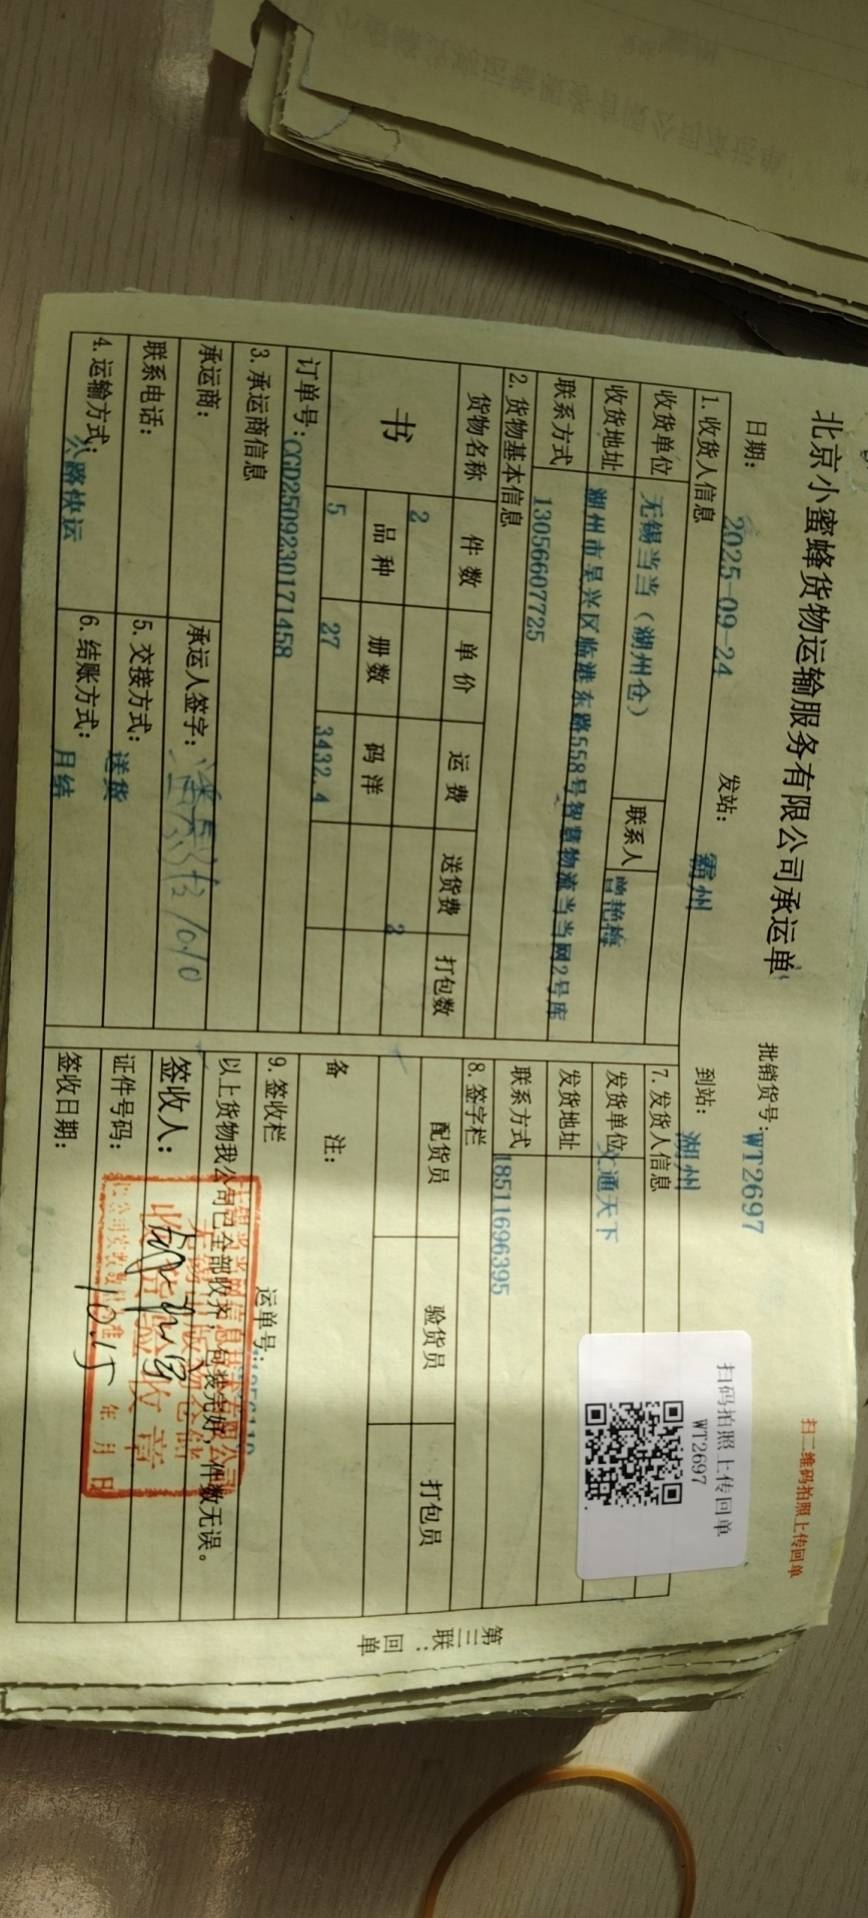 扫二维码拍照上传回单
北京小蜜蜂货物运输服务有限公司承运单
批销货号:WT2697
日期: 2025-09-24 发站: 霸州 到站: 湖州
扫码拍照上传回单
WT2697
1. 收货人信息
收货单位 无锡当当（湖州仓） 联系人 曾艳梅
收货地址 湖州市吴兴区临港东路558号智慧物流当当网2号库
联系方式 13056607725
2. 货物基本信息
货物名称 件数 单价 运费 送货费 打包数
书 2 2
品种 册数 码洋
5 27 3432.4
订单号:CGD2509230171458
3. 承运商信息
承运商: 承运人签字: 1010
联系电话: 5. 交接方式: 送货
4. 运输方式: 公路快运 6. 结账方式: 月结
7. 发货人信息
发货单位 通天下
发货地址
联系方式 18511696395
8. 签字栏
配货员 验货员 打包员
备 注:
9. 签收栏 运单号:
以上货物我公司已全部收齐，包装完好，件数无误。
签收人:
证件号码:
签收日期: 10.15
收货验收章
年 月 日
第三联：回单